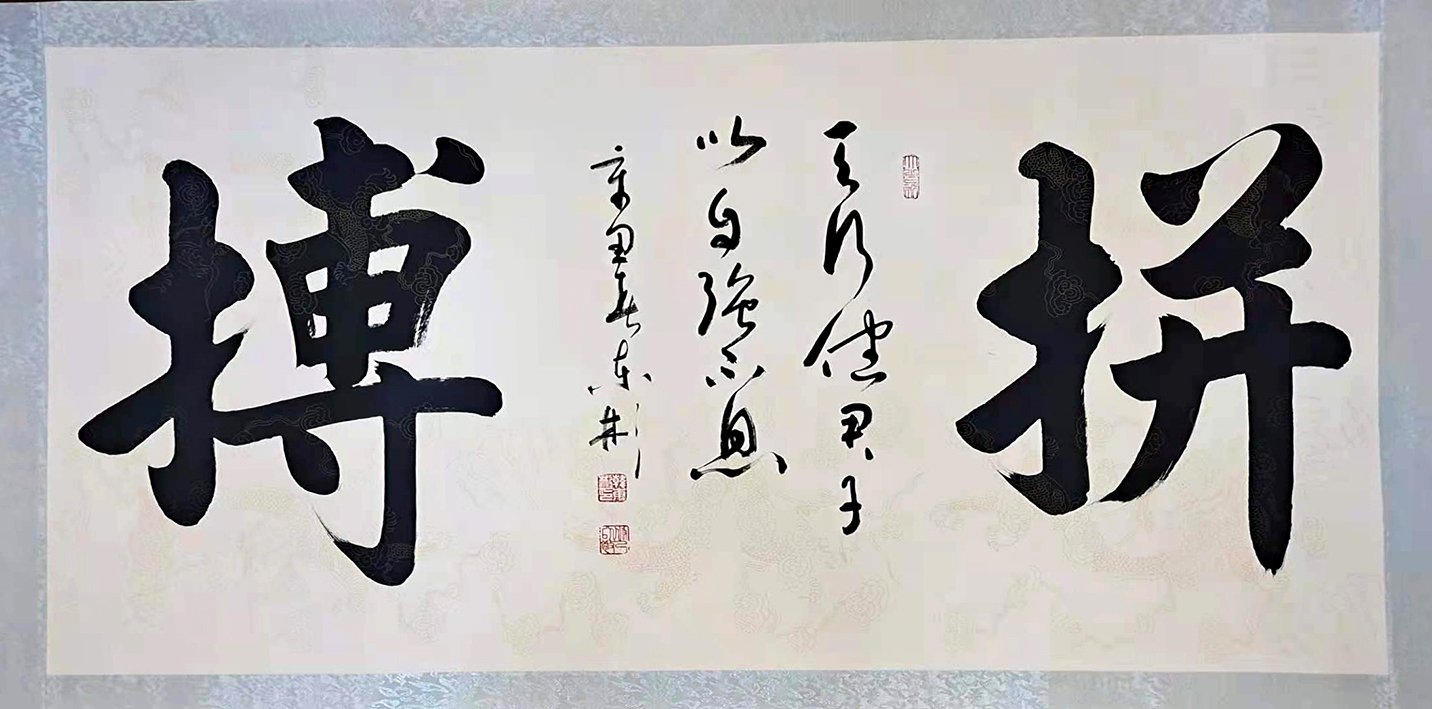 拼
天行健君子
以自强不息
辛丑春东彬
搏